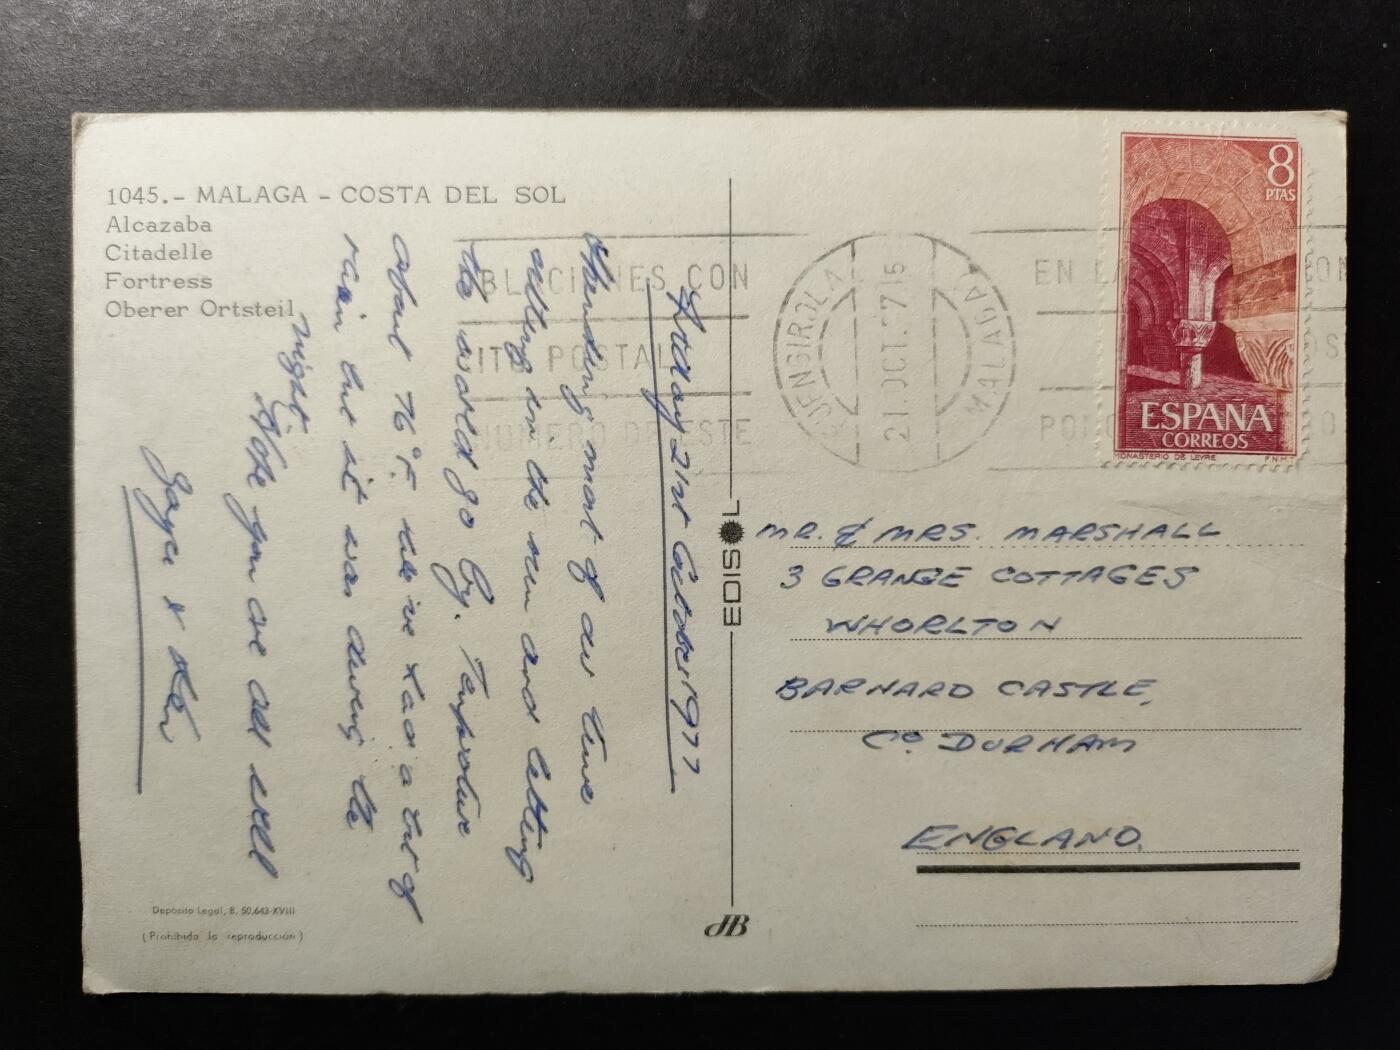 1045.- MALAGA - COSTA DEL SOL
Alcazaba
Citadelle
Fortress
Oberer Ortsteil
Friday 21st October 1977
Spending most of our time
sitting in the sun and letting
the world go by. Temperature
about 76°F. we've had a bit of
rain but it was during the
night.
Hope you are all well
Joyce & Ken
Deposito Legal, B. 50.643-XVIII
(Prohibida la reproducción)
EDISOL
JB
CIONES CON
POSTAL
NUMERO DE ESTE
FUENGIROLA
21.OCT.77 15
(MALAGA)
EN LA
8
PTAS
ESPAÑA
CORREOS
MONASTERIO DE LEYRE F.N.M.T.
MR. & MRS. MARSHALL
3 GRANGE COTTAGES
WHORLTON
BARNARD CASTLE,
Co DURHAM
ENGLAND.